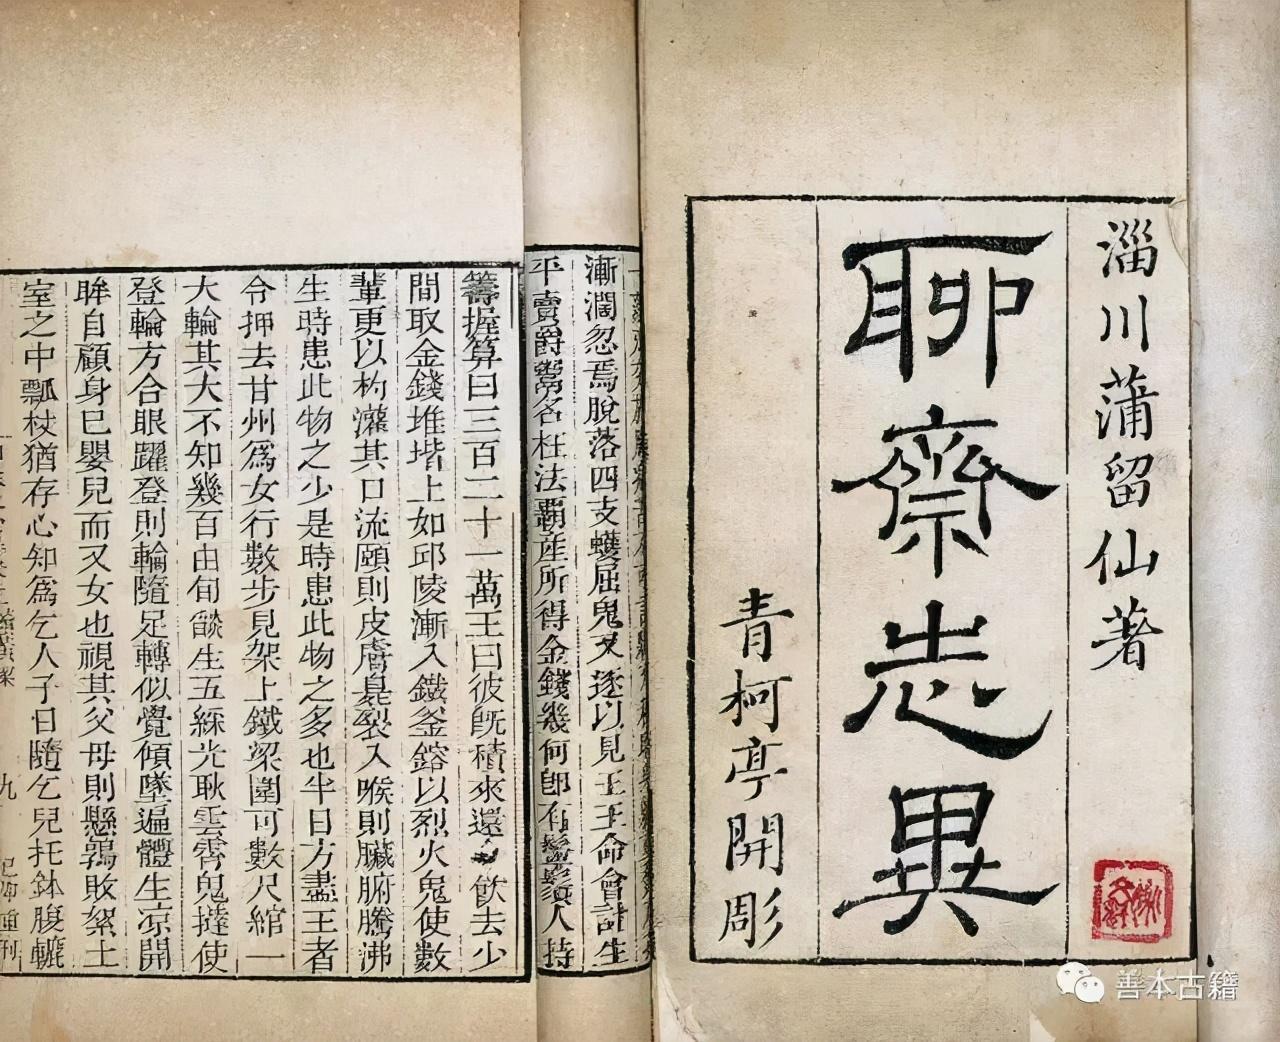 淄川蒲留仙著
聊齋志異
青柯亭開彫
漸濶忽焉脫落四支蠖屈鬼又逐以見王王命會計生
平賣爵鬻名枉法覇產所得金錢幾何卽有鬡鬚人持
籌握算曰三百二十一萬王曰彼旣積來還令飲去少
間取金錢堆堦上如邱陵漸入鐵釜鎔以烈火鬼使數
輩更以杓灌其口流頤則皮膚臭裂入喉則臟腑騰沸
生時患此物之少是時患此物之多也半日方盡王者
令押去甘州爲女行數步見架上鐵梁圍可數尺綰一
大輪其大不知幾百由旬燄生五綵光耿雲霄鬼撻使
登輪方合眼躍登則輪隨足轉似覺傾墜遍體生凉開
眸自顧身已嬰兒而又女也視其父母則懸鶉敗絮土
室之中瓢杖猶存心知爲乞人子日隨乞兒托鉢腹轆
九
善本古籍